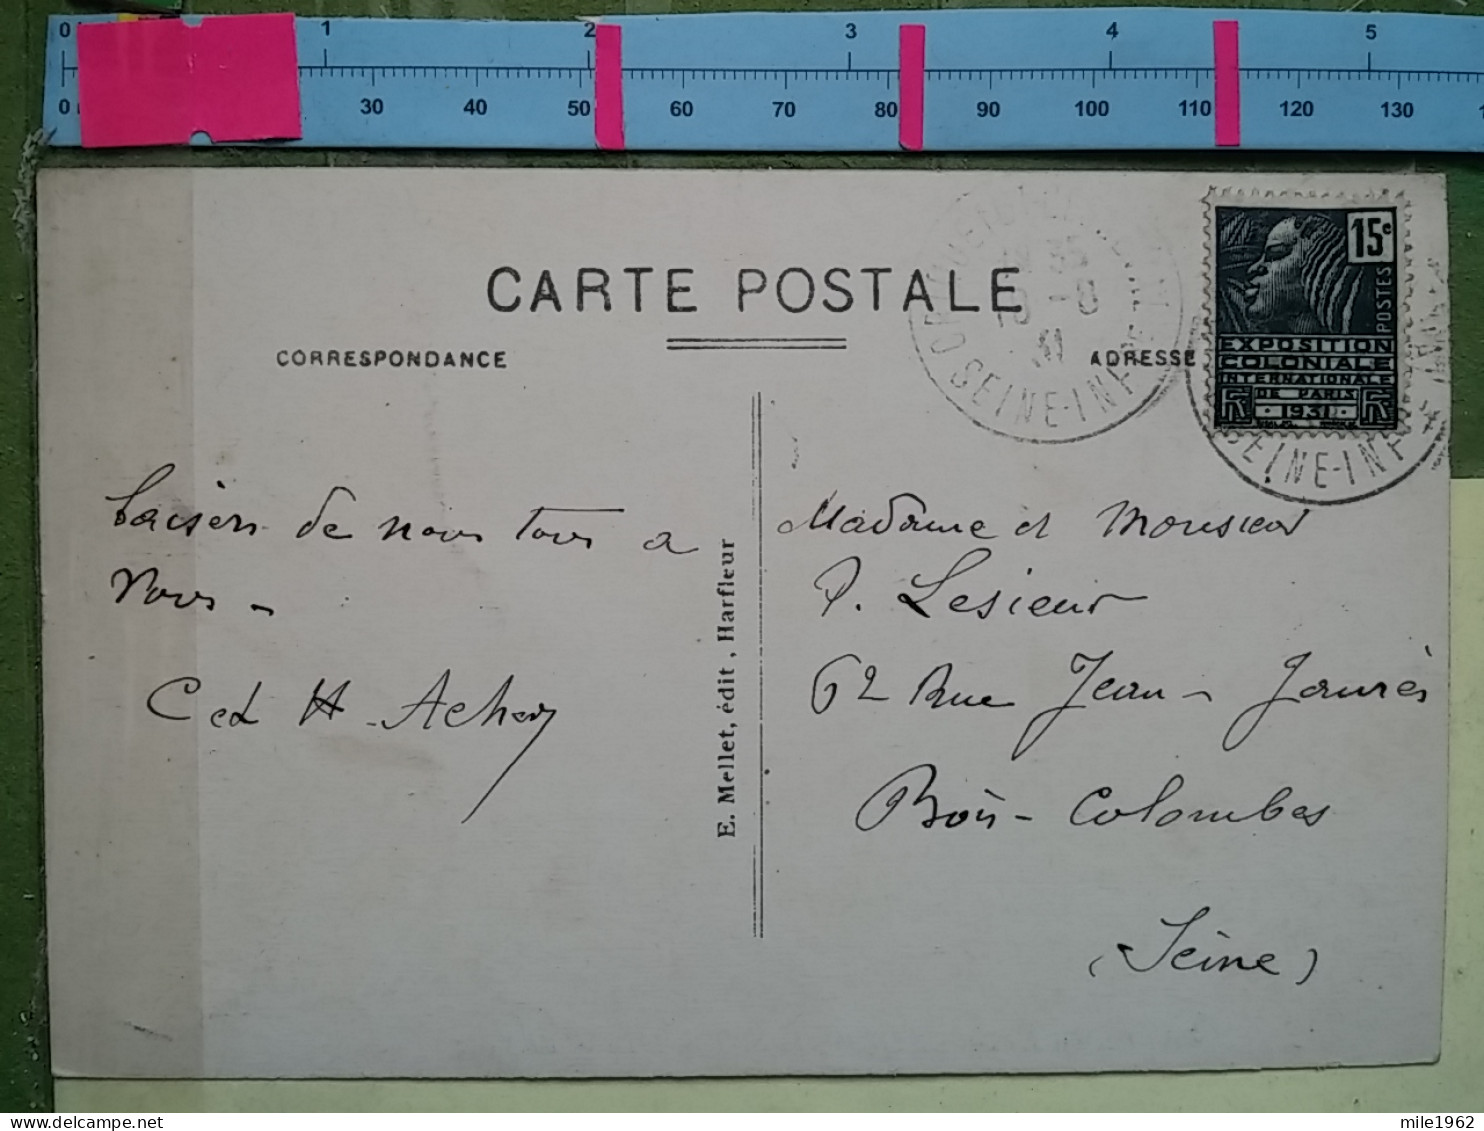 0 1 2 3 4 5
0 30 40 50 60 70 80 90 100 110 120 130
CARTE POSTALE
CORRESPONDANCE
ADRESSE
15c
POSTES
EXPOSITION
COLONIALE
INTERNATIONALE
DE PARIS
1931
31
SEINE-INFRE
SEINE-INF
baisers de nous tous a
vous -
C et H. Achery
E. Mellet, édit, Harfleur
Madame et Monsieur
P. Lesieur
62 Rue Jean-Jaurès
Bois-Colombes
(Seine)
mile1962